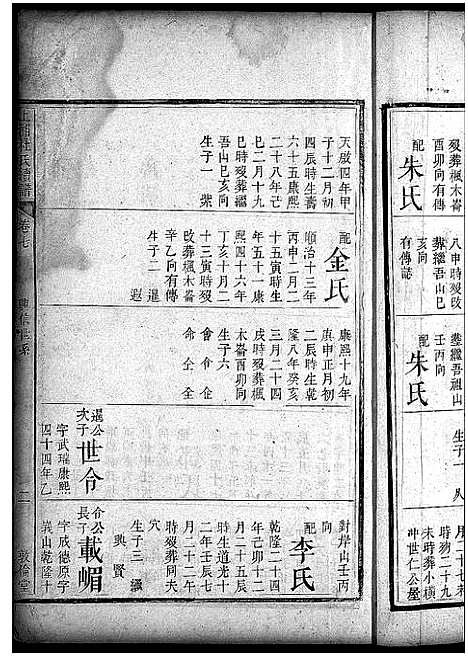 歿葬楓木崙
酉卯向有傳
配 朱氏
八申時歿改
葬繼吾山巳
亥向
有傳誌
葬繼吾祖
壬丙向
配 朱氏
生子一
月二十七未
時歿二十九
未時葬小橫
冲世仁公屋
天啟四年甲
子十二月初
四辰時生壽
六十五康熙
二十八年己
巳二月十九
巳時歿葬繼
吾山巳亥向
生子一 紫
配 金氏
順治十三年
丙申二月二
十五寅時生
年五十一康
熙四十六年
丁亥十月二
十三寅時歿
改葬楓木崙
辛乙向有傳
生子二 暹
遐
康熙十九年
庚申正月初
二辰時生乾
隆八年癸亥
三月二十四
戌時歿葬楓
木崙酉卯向
生子六
會 令
暹公次子 世令
字武瑞康熙
四十四年乙
對岸山壬丙
向
配 李氏
乾隆二十四
年己卯十二
月二十五辰
時生道光十
二年壬辰七
月二十二辰
時歿葬同夫
穴
生子三
興 賢
介公長子 載嵋
字成德原字
峩山乾隆十
卷七
二
敦倫堂